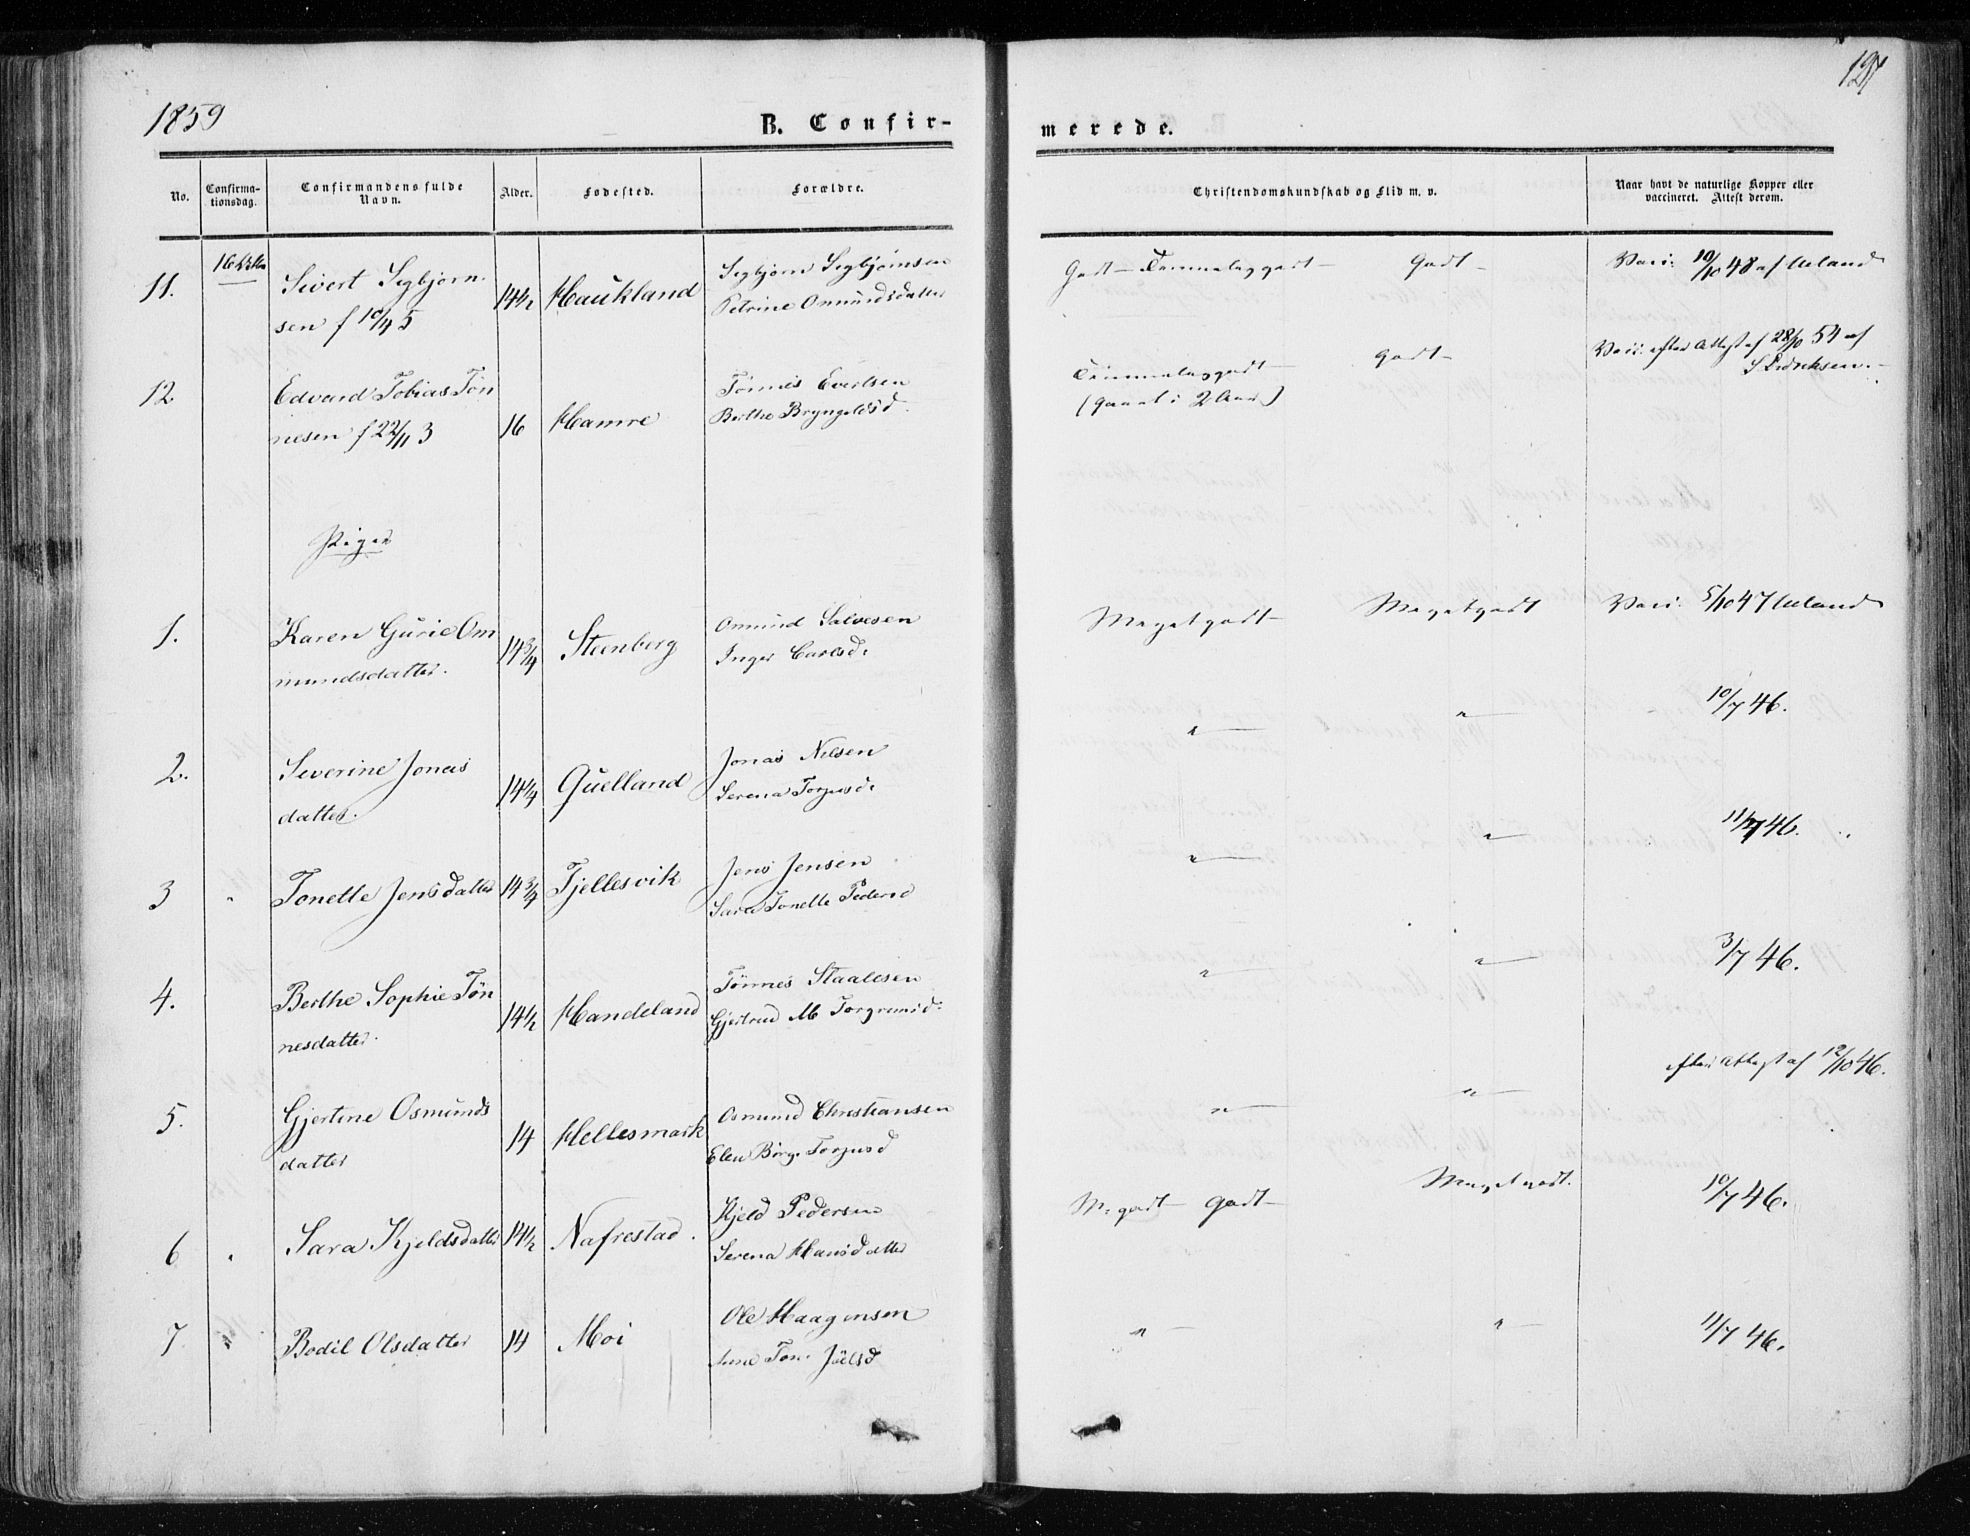 1859
B. Confir-
merede.
127
No.
Confirma-
tionsdag.
Confirmandens fulde
Navn.
Alder.
Fødested.
Forældre.
Christendomskundskab og Flid m. v.
Naar havt de naturlige Kopper eller
vaccineret. Attest derom.
11.
Sivert Sigbjørn-
sen f 10/4 5
14 1/2
Haukland
Sigbjørn Sigbjørnsen
Petrine Omundsdatter
Godt - Temmelig godt -
Godt -
Vacc. 10/10 48 af Ueland
12
Edvard Tobias Tøn
nesen f 22/11 3
16
Hamre
Tønnes Evertsen
Berthe Bryngelsd.
Temmelig godt -
Godt -
Vacc. efter Attest af 28/10 54 af
S Didriksen. -
Piger
1.
Karen Gurie Om
mundsdatter.
14 3/4
Steenberg
Ommund Salvesen
Inger Carlsd.
Meget godt -
Meget godt
Vacc. 5/10 47 Ueland
2.
Severine Jonas
datter.
14 1/4
Quelland
Jonas Nilsen
Serena Torjusd.
" -
" -
10/7 46.
3
Tonette Jensdatter
14 3/4
Tjellesvik
Jens Jensen
Sara Tonette Pedersd
" -
" -
11/7 46.
4.
Berthe Sophie Tøn
nesdatter.
14 1/2
Handeland
Tønnes Staalesen
Gjertrud M Torgrimsd.
" -
" -
3/7 46.
5.
Gjertine Osmunds
datter
14
Hellesmark
Osmund Christiansen
Elen Børg. Torjusd
" -
" -
efter Attest af 12/10 46.
6
Sara Kjeldsdatter
14 1/2
Nafrestad.
Kjeld Pedersen
Serena Hansdatter
M. godt - Godt -
Meget godt.
10/7 46.
7.
Bodil Olsdatter
14
Moi
Ole Haagensen
Ane Ton. Joelsd
" -
" -
11/7 46.